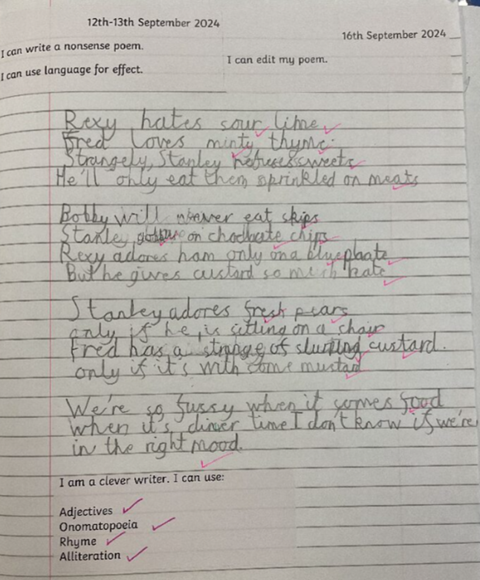 12th-13th September 2024
16th September 2024
I can write a nonsense poem.
I can edit my poem.
I can use language for effect.
Rexy hates sour lime
Fred loves minty thyme.
Strangely, Stanley refuses sweets
He'll only eat them sprinkled on meats
Bobby will never eat skips
Stanley on choclate chips
Rexy adores ham only on a blue plaate
But he gives custard so much hate
Stanley adores fresh pears
only if he is sitting on a chair
Fred has a strange of slurting custard.
only if it's with some mustard
We're so fussy when it comes food
when it's dinner time I don't know if we're
in the right mood.
I am a clever writer. I can use:
Adjectives
Onomatopoeia
Rhyme
Alliteration